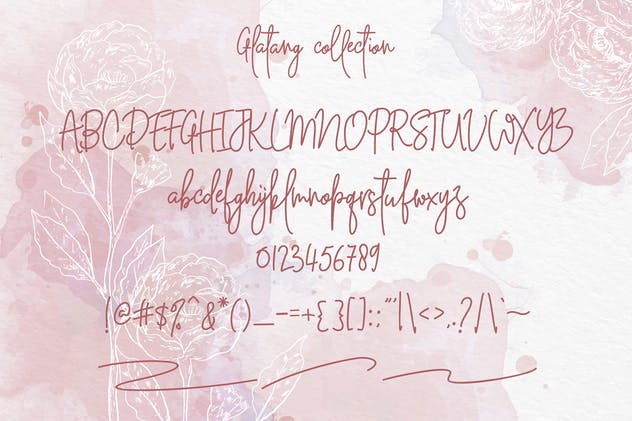 Glatang collection
ABCDEFGHIJKLMNOPRSTUVWXYZ
abcdefghijklmnopqrstufwxyz
0123456789
!@#$%^&*()_-=+{}[]:;"'|\<>,.?/|\`~